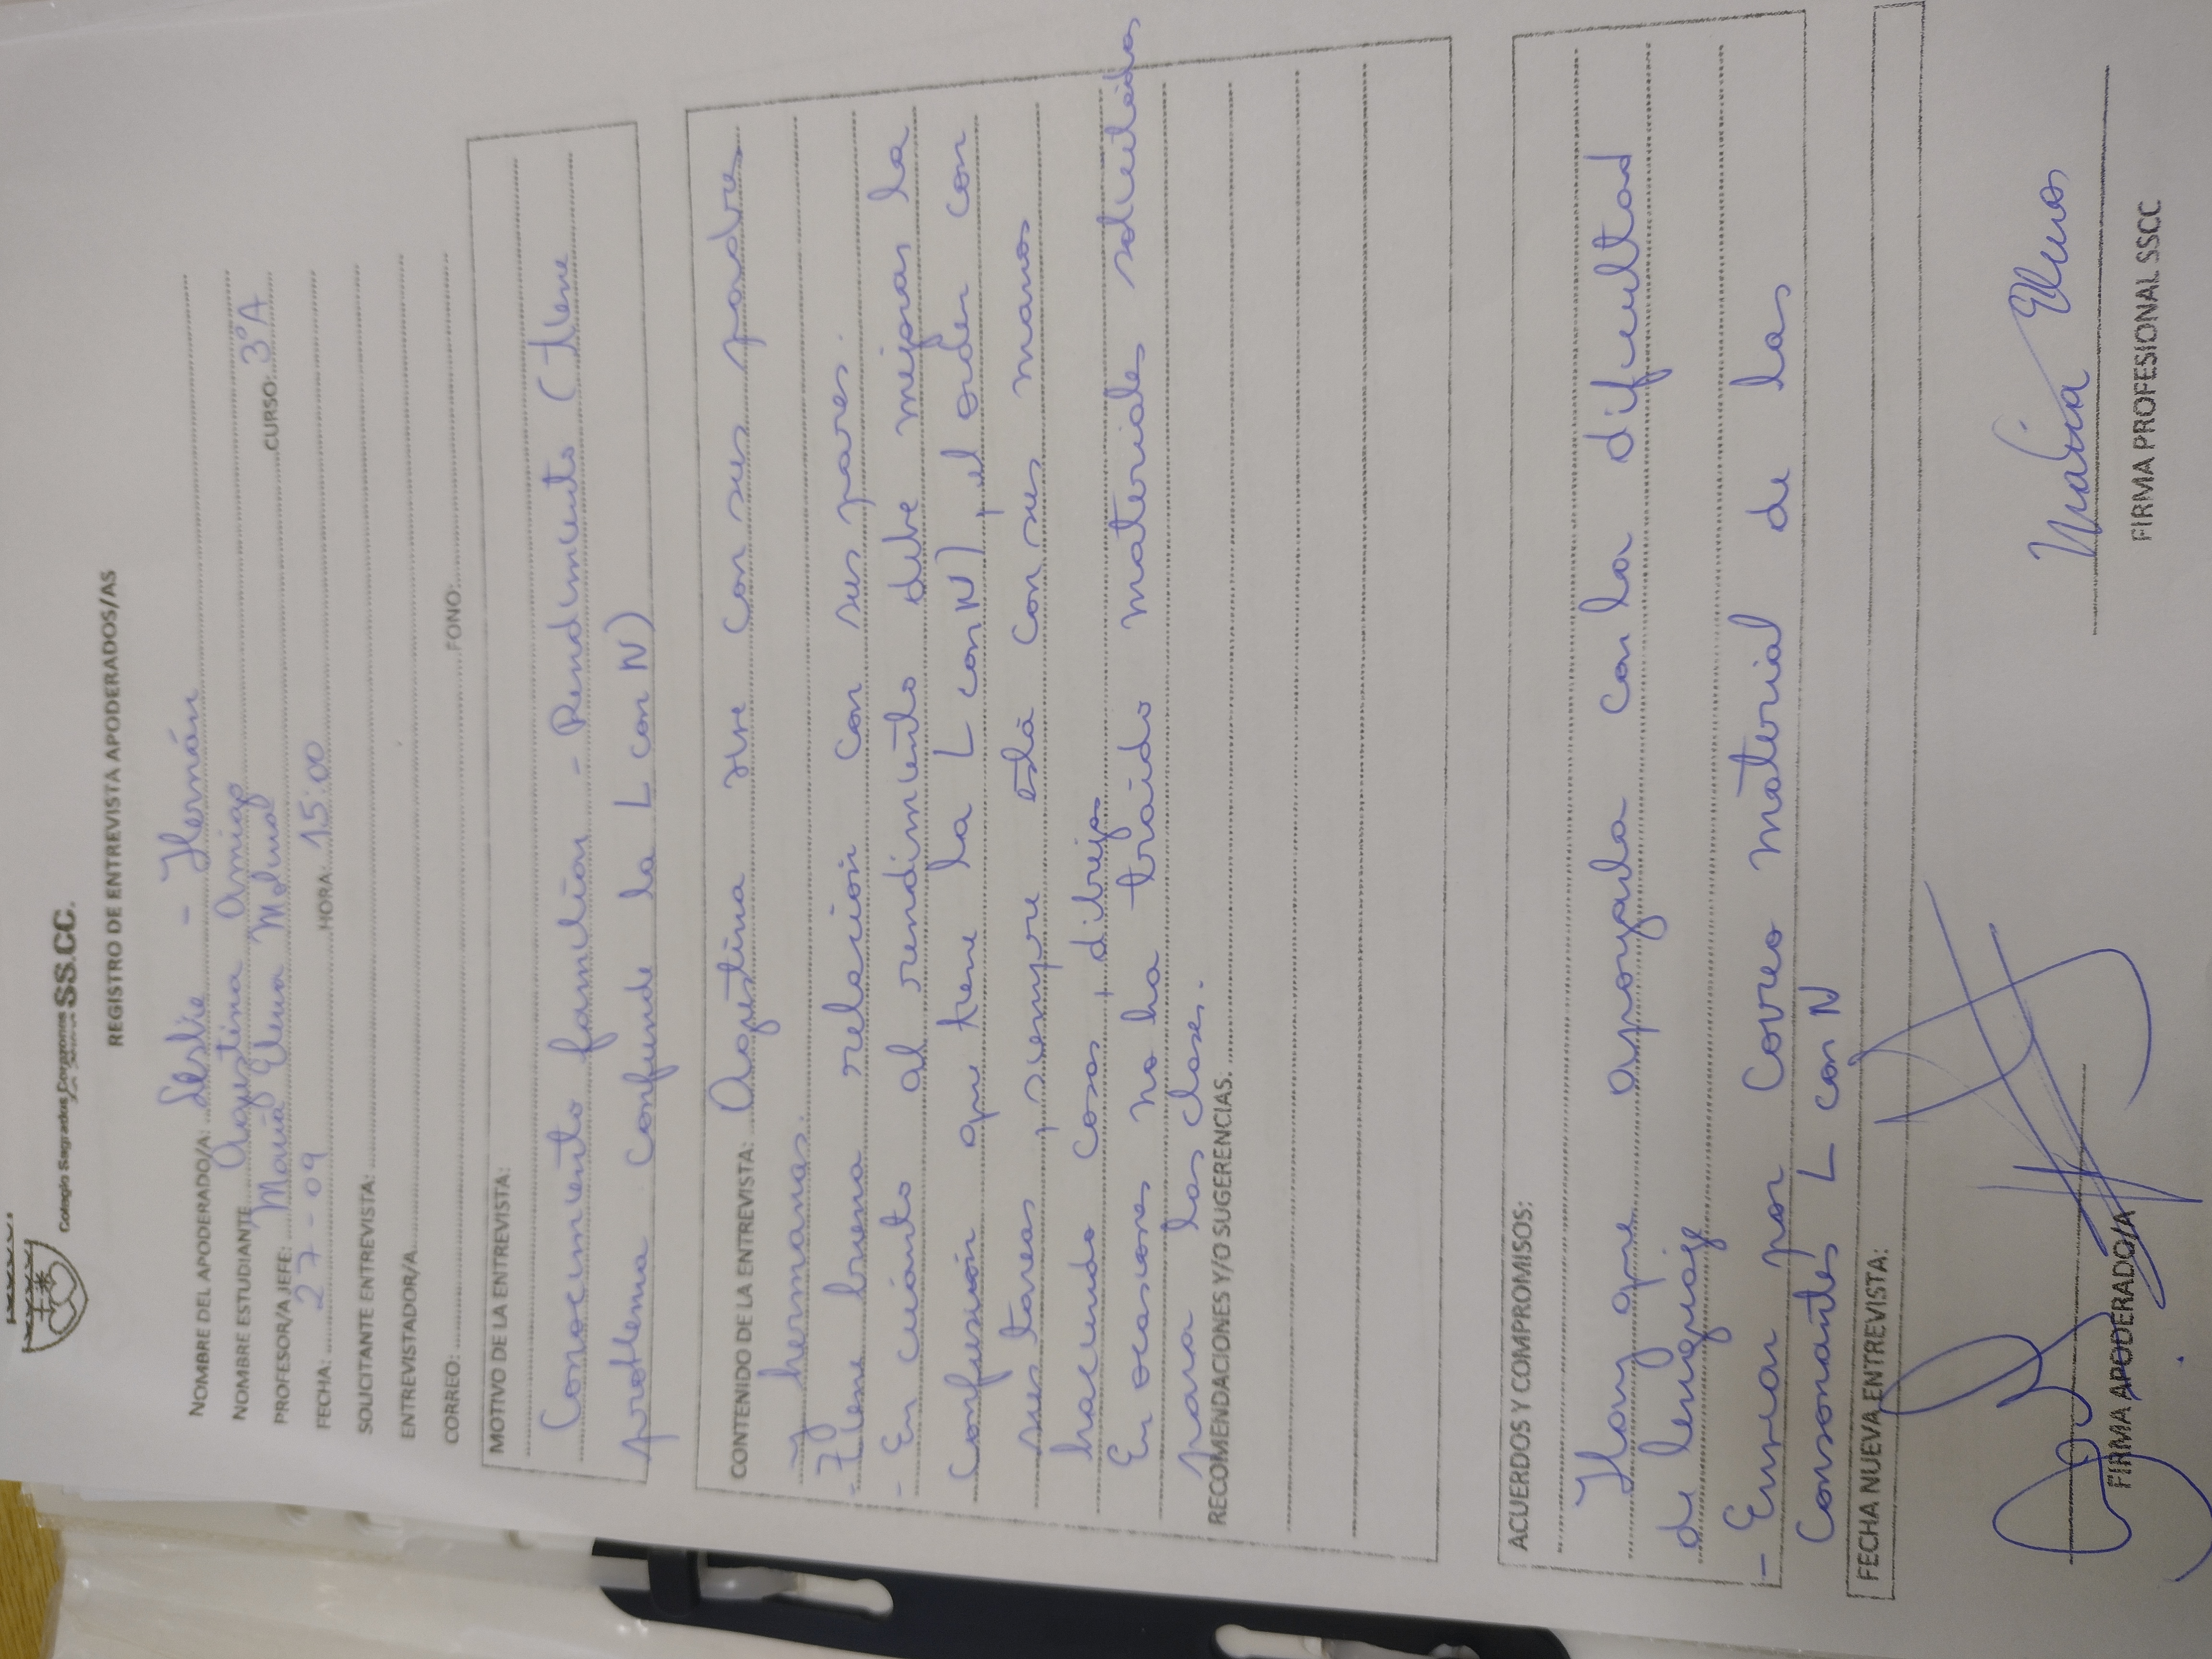 Colegio Sagrados Corazones SS.CC.
REGISTRO DE ENTREVISTA APODERADOS/AS
NOMBRE DEL APODERADO/A: Leslie - Hernán
NOMBRE ESTUDIANTE Agustina Amigo
PROFESOR/A JEFE: María Elena Molina CURSO: 3°A
FECHA: 27-09 HORA: 15:00
SOLICITANTE ENTREVISTA:
ENTREVISTADOR/A
CORREO: FONO:
MOTIVO DE LA ENTREVISTA:
Conocimiento familiar - Rendimiento (tiene
problema confunde la L con N)
CONTENIDO DE LA ENTREVISTA: Agustina vive con sus padres
y hermanas.
- Tiene buena relación con sus pares.
- En cuanto al rendimiento debe mejorar la
confusión que tiene la L con N), el orden con
sus tareas, siempre está con sus manos
haciendo cosas, dibuja
En ocasiones no ha traido materiales solicitados
para las clases.
RECOMENDACIONES Y/O SUGERENCIAS.
ACUERDOS Y COMPROMISOS:
Hay que apoyarla con la dificultad
de lenguaje
- Enviar por correo material de las
consonantes L con N
FECHA NUEVA ENTREVISTA:
FIRMA APODERADO/A
María Elena
FIRMA PROFESIONAL SSCC